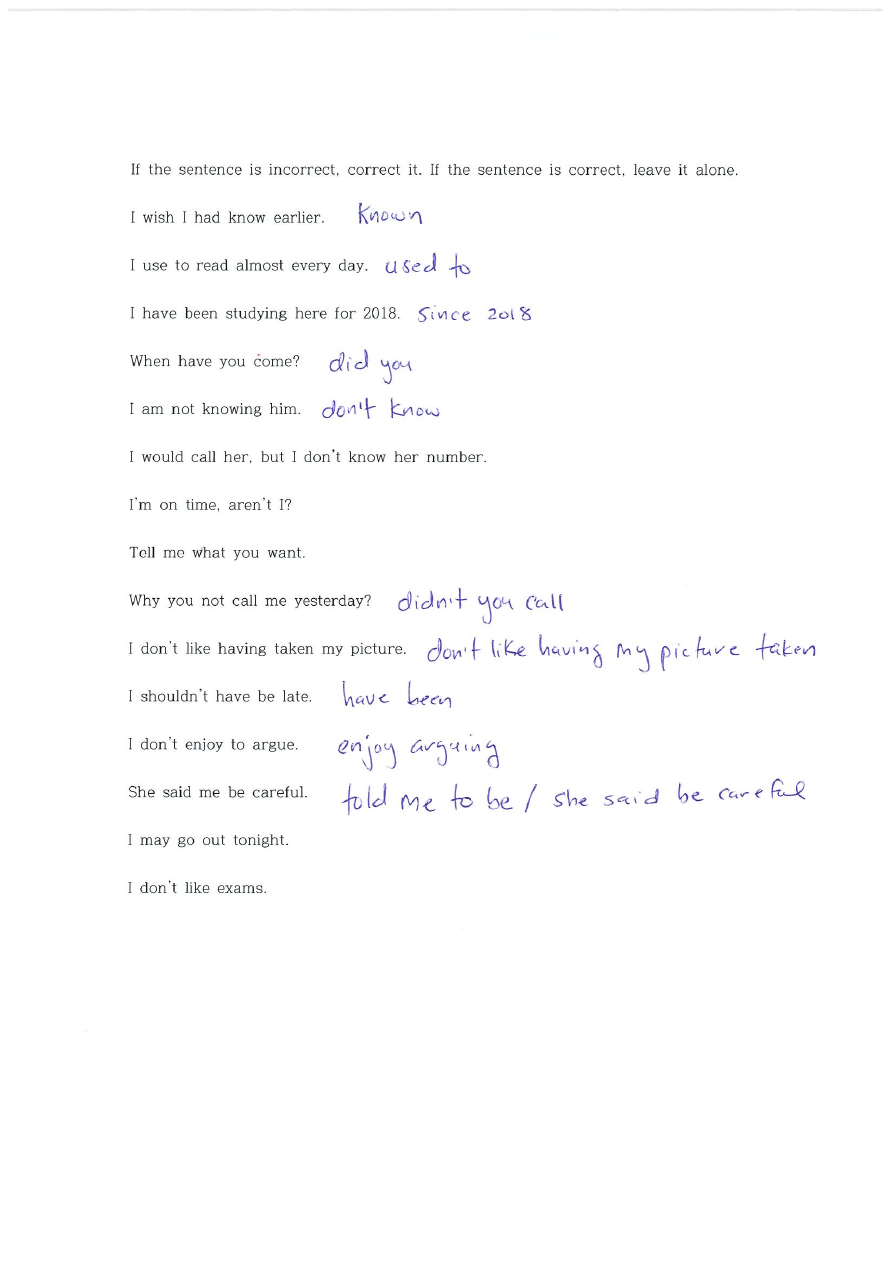 If the sentence is incorrect, correct it. If the sentence is correct, leave it alone.
I wish I had know earlier. known
I use to read almost every day. used to
I have been studying here for 2018. since 2018
When have you come? did you
I am not knowing him. don't know
I would call her, but I don't know her number.
I'm on time, aren't I?
Tell me what you want.
Why you not call me yesterday? didn't you call
I don't like having taken my picture. don't like having my picture taken
I shouldn't have be late. have been
I don't enjoy to argue. enjoy arguing
She said me be careful. told me to be / she said be careful
I may go out tonight.
I don't like exams.